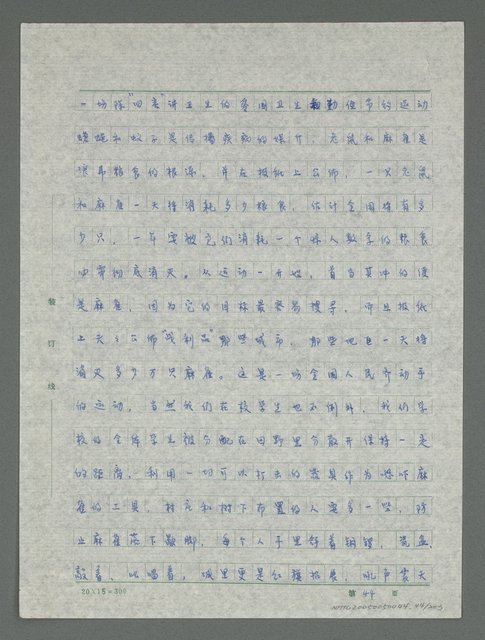 一场除“四害”讲卫生的爱国卫生和勤俭节约运动
苍蝇和蚊子是传播疾病的媒介，老鼠和麻雀是
浪弄粮食的根源。并在报纸上公布，一只老鼠
和麻雀一天将消耗多少粮食，估计全国将有多
少只，一年要被它们消耗一个惊人数字的粮食
必需彻底消灭。从运动一开始，首当其冲的便
是麻雀，因为它的目标最容易搜寻，而且报纸
上天天公布“战利品”那些城市，那些地区一天将
消灭多少万只麻雀。这是一场全国人民齐动手
的运动。当然我们在校学生也不例外，我们学
校的全体学生被分配在田野里分散开保持一定
的距离，利用一切可以打击的器具作为恐吓麻
雀的工具，村壳和树下布置的人要多一些，防
止麻雀落下歇脚，每个人手里舒着铜锣，瓷盆，
敲着、吆喝着，城里更是红旗招展，吼声震天
装
订
线
20×15=300
第 44 页